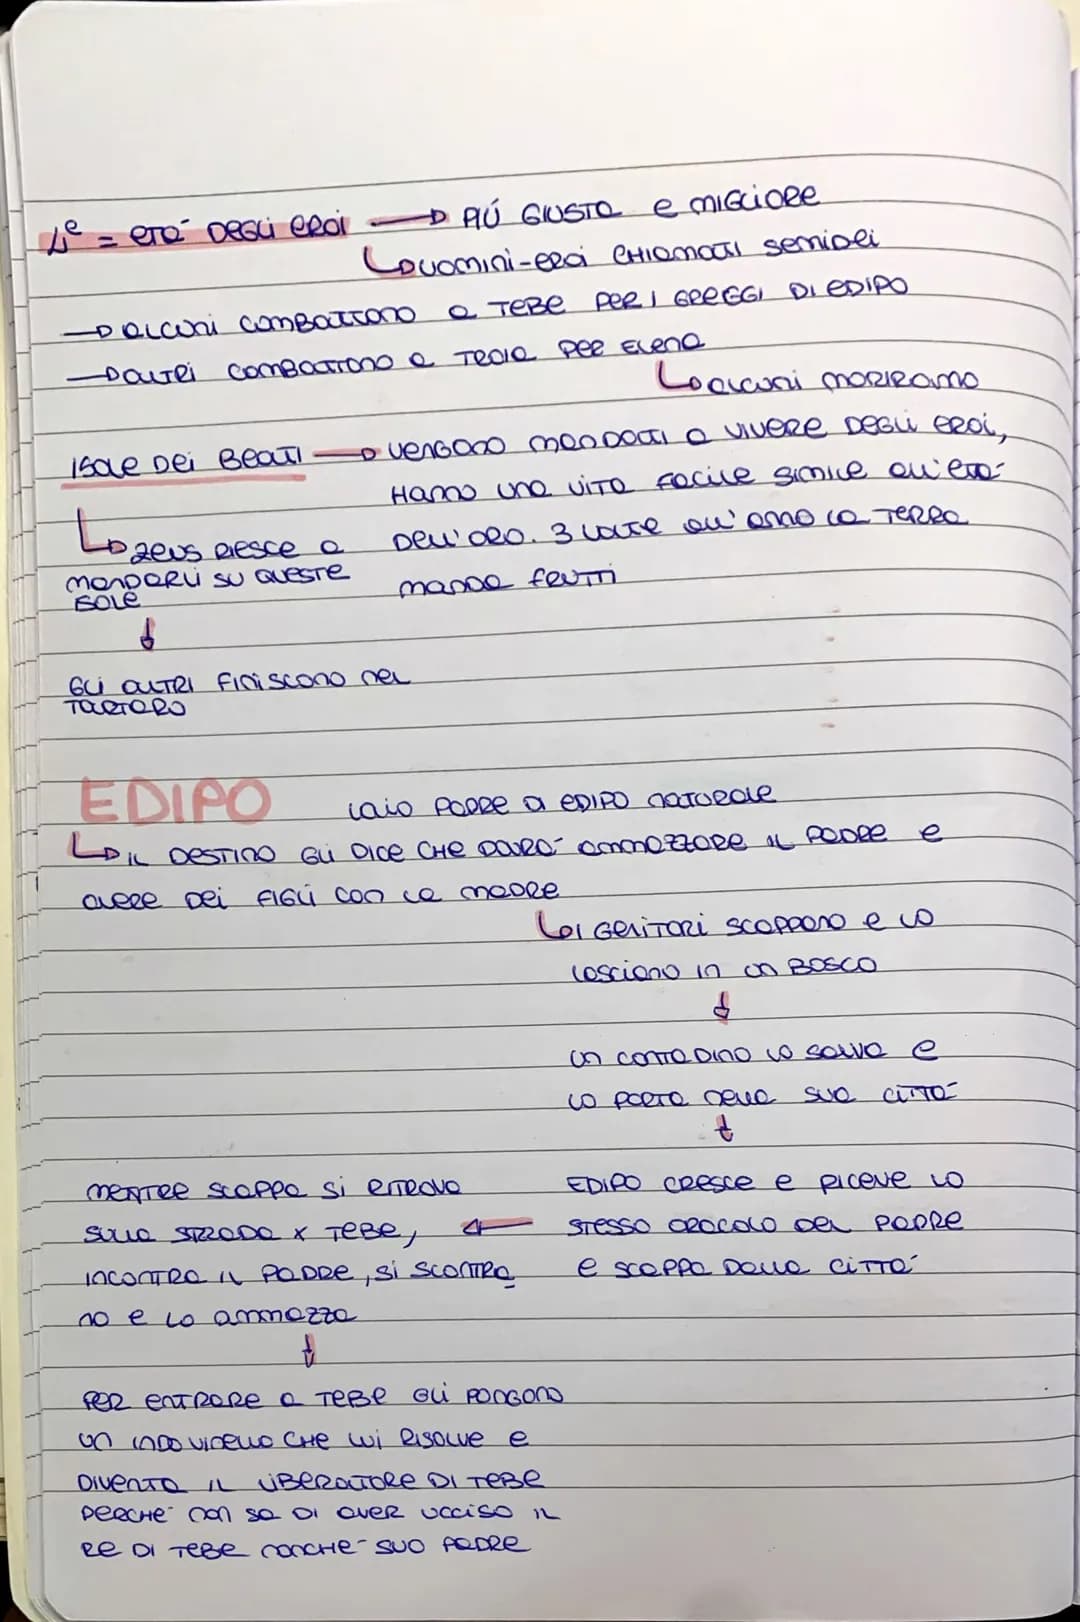 4e = età degli eroi → più giusta e migliore
↳ uomini-eroi chiamati semidei
→ alcuni combattono a Tebe per i greggi di Edipo
→ altri combattono a Troia per Elena
↳ alcuni moriramo
Isole dei Beati → vengono mandati a vivere degli eroi,
hanno una vita facile simile all'età
dell'oro. 3 volte all'anno la terra
manda frutti
↳ Zeus riesce a
mandarli su queste
isole
↓
gli altri finiscono nel
Tartaro
EDIPO
Laio padre di Edipo naturale
↳ il destino gli dice che dovrà ammazzare il padre e
avere dei figli con la madre
↳ i genitori scappano e lo
lasciano in un bosco
↓
un contadino lo salva e
lo porta nella sua città
↓
Edipo cresce e riceve lo
stesso oracolo del padre
e scappa dalla città
←
mentre scappa si ritrova
sulla strada x Tebe,
incontra il padre, si scontra
no e lo ammazza
↓
per entrare a Tebe gli pongono
un indovinello che lui risolve e
diventa il liberatore di Tebe
perché non sa di aver ucciso il
re di Tebe nonché suo padre